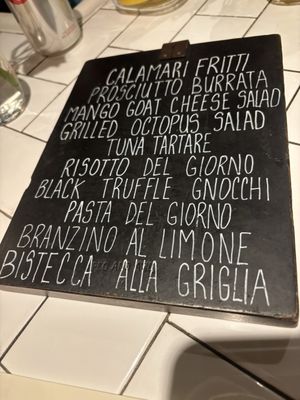 CALAMARI FRITTI
PROSCIUTTO BURRATA
MANGO GOAT CHEESE SALAD
GRILLED OCTOPUS SALAD
TUNA TARTARE
RISOTTO DEL GIORNO
BLACK TRUFFLE GNOCCHI
PASTA DEL GIORNO
BRANZINO AL LIMONE
BISTECCA ALLA GRIGLIA